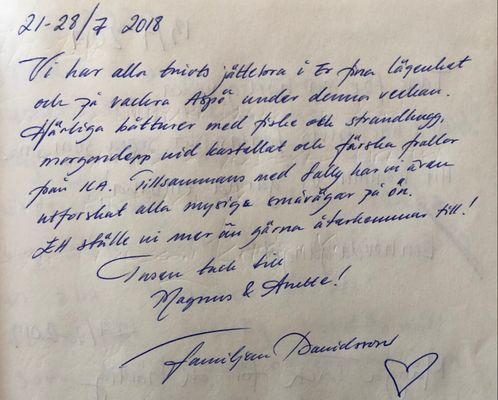 21-28/7 2018
Vi har alla trivts jättebra i Er fina lägenhet
och på vackra Aspö under denna veckan.
Härliga båtturer med fiske och strandhugg,
morgondopp vid kastellet och färska frallor
från ICA. Tillsammans med Sally har vi även
utforskat alla mysiga småvägar på ön.
Ett ställe vi mer än gärna återkommer till!
Tusen tack till
Magnus & Anette!
Familjen Davidsson